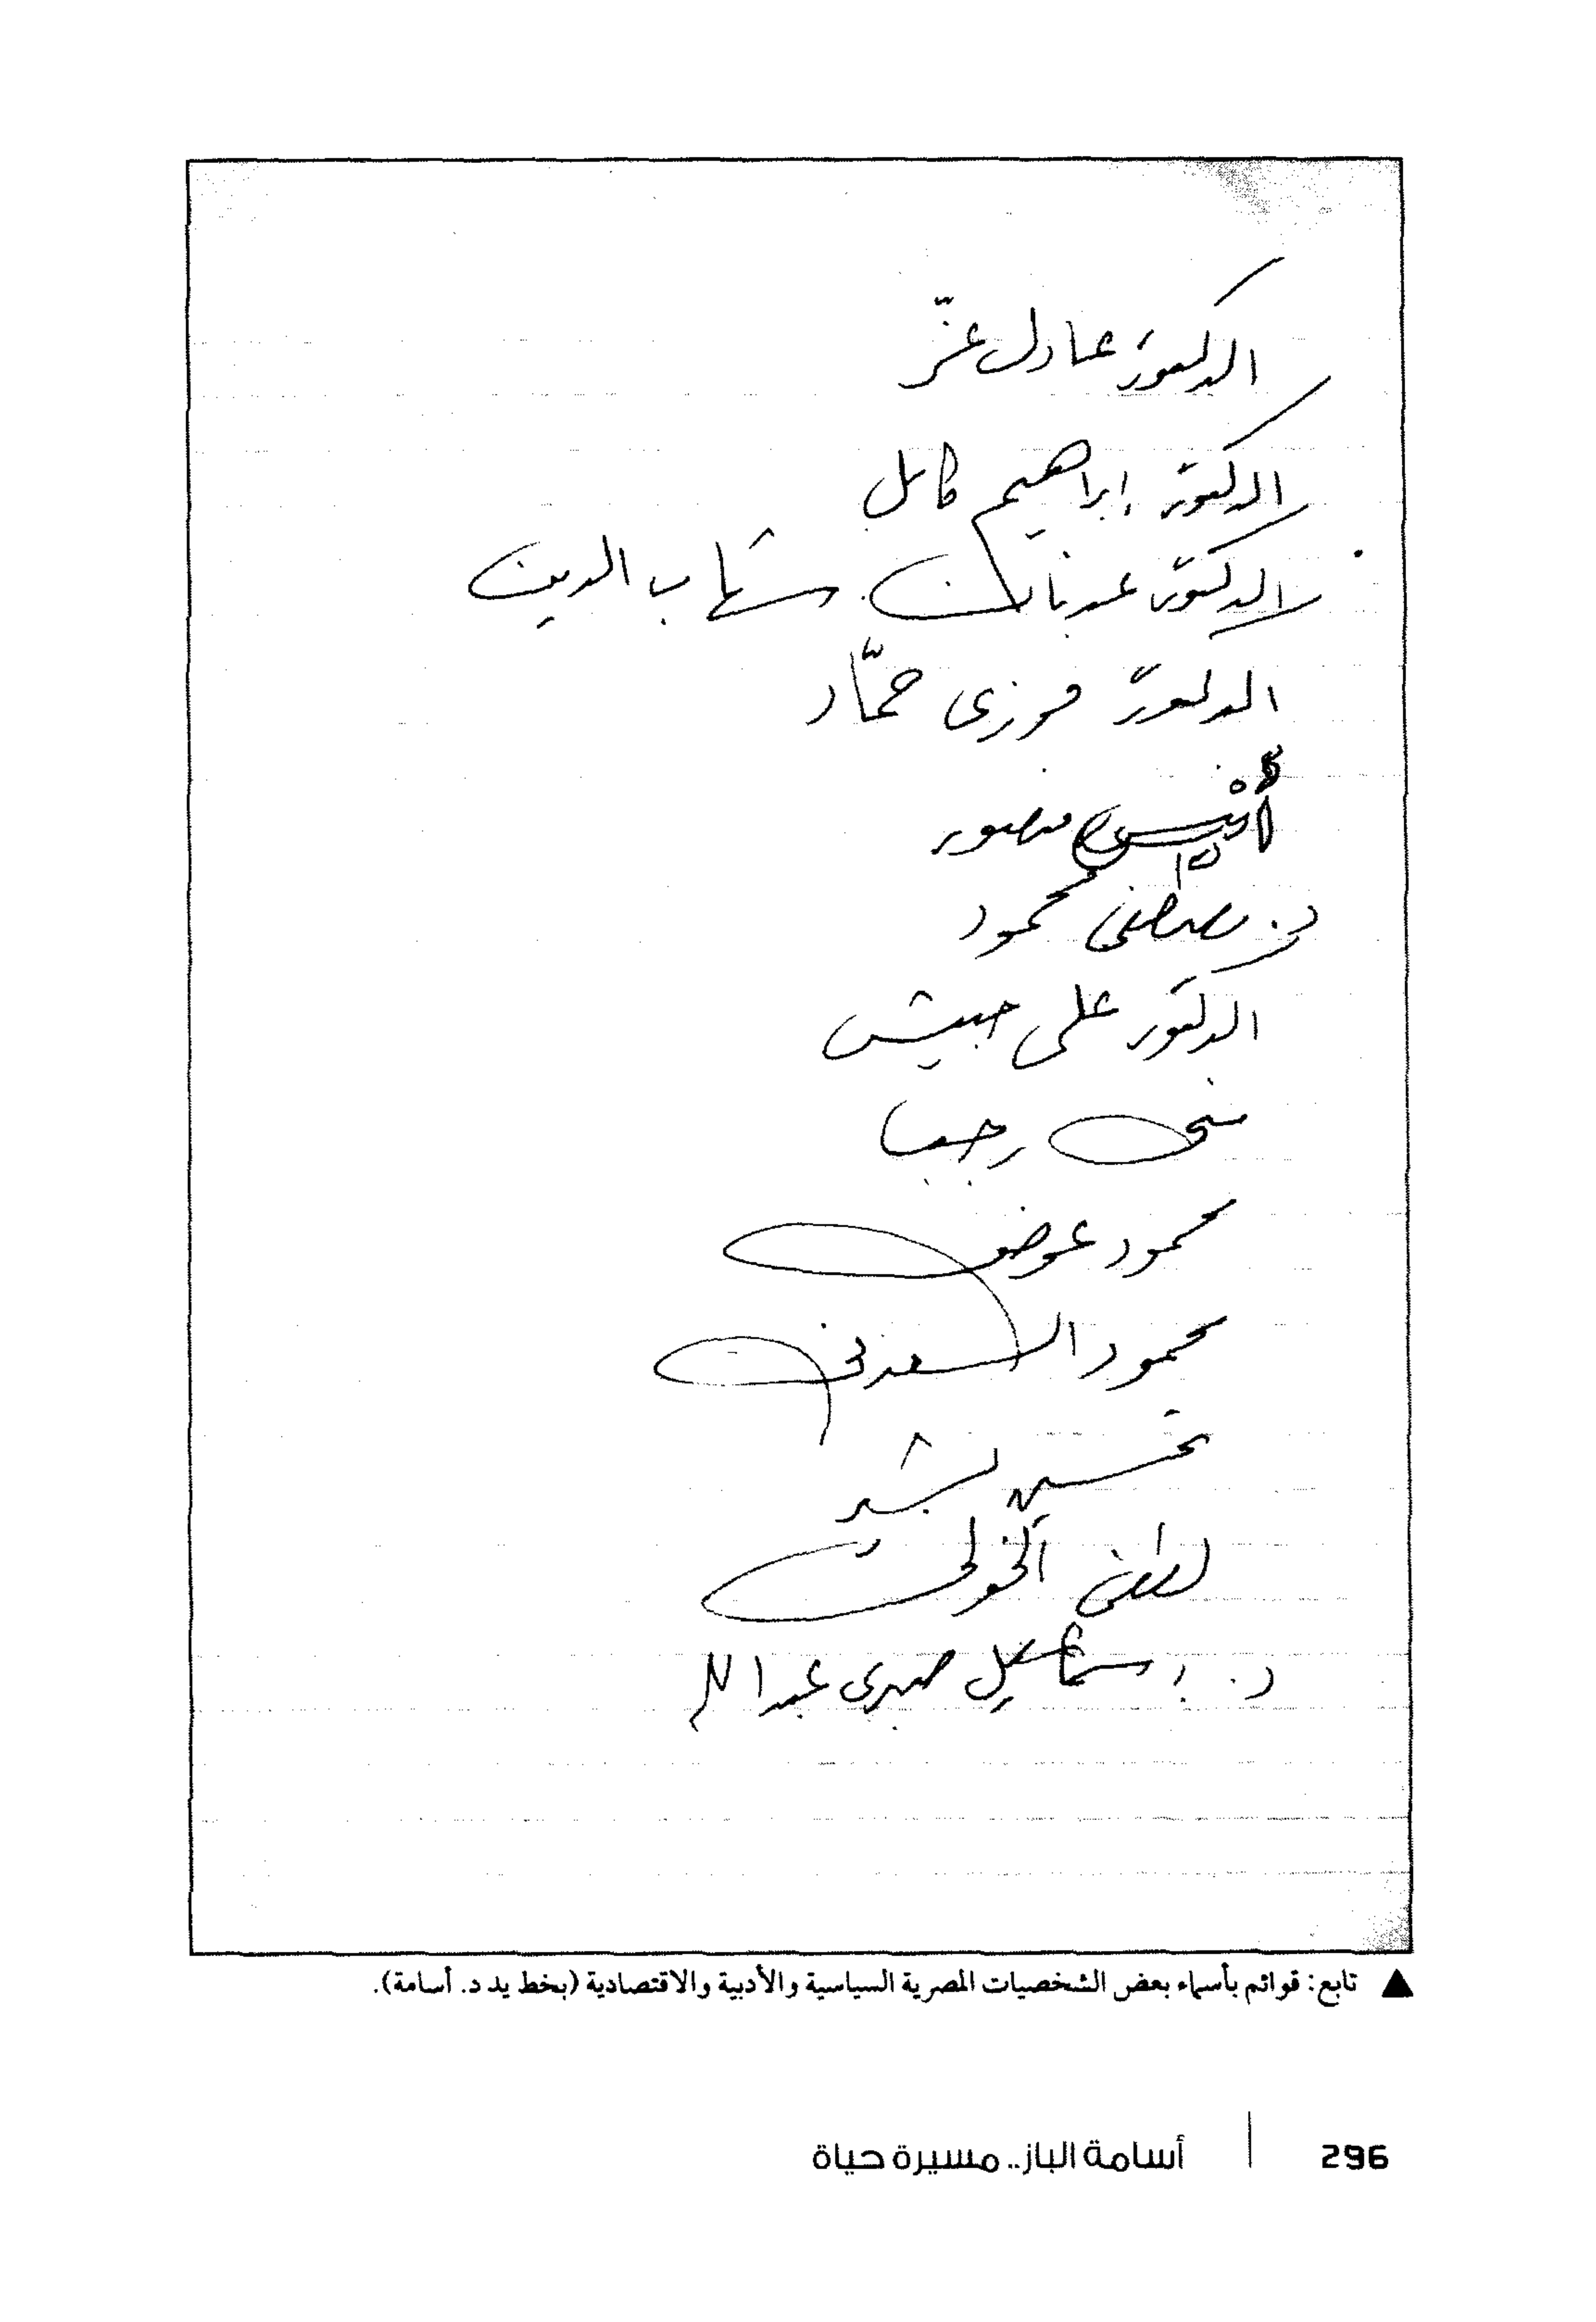 الدكتور عادل عزّ
الدكتور إبراهيم كامل
الدكتور عدنان شهاب الدين
الدكتور فوزى حمّاد
أنيس منصور
د. مصطفى محمود
الدكتور على حبيش
منى رجب
محمود عوض
محمود السعدنى
تحسين بشير
لطفى الخولى
د. إسماعيل صبرى عبد الله
▲ تابع: قوائم بأسماء بعض الشخصيات المصرية السياسية والأدبية والاقتصادية (بخط يد د. أسامة).
296 | أسامة الباز.. مسيرة حياة